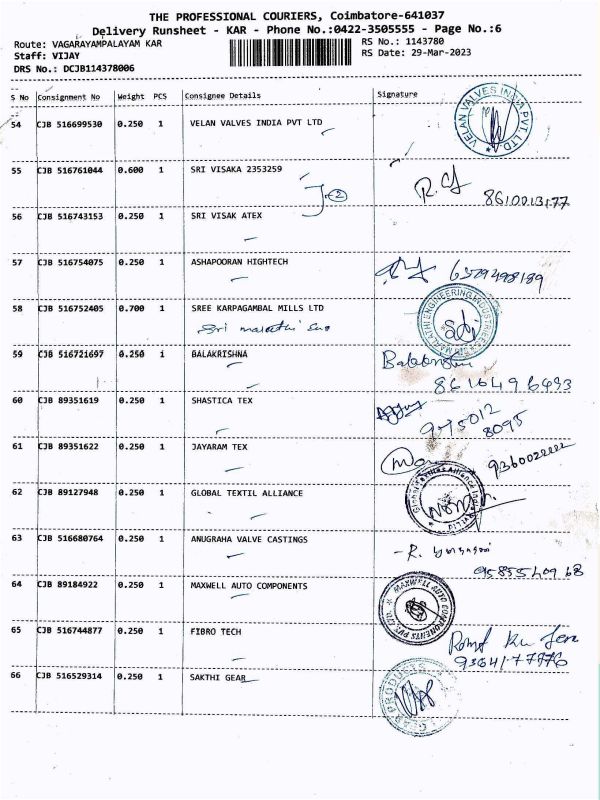 THE PROFESSIONAL COURIERS, Coimbatore-641037
Delivery Runsheet - KAR - Phone No.:0422-3505555 - Page No.:6
Route: VAGARAYAMPALAYAM KAR
RS No.: 1143780
Staff: VIJAY
RS Date: 29-Mar-2023
DRS No.: DCJB114378006
S No Consignment No Weight PCS Consignee Details Signature
54 CJB 516699530 0.250 1 VELAN VALVES INDIA PVT LTD
VELAN VALVES INDIA PVT. LTD.
55 CJB 516761044 0.600 1 SRI VISAKA 2353259
8610013177
56 CJB 516743153 0.250 1 SRI VISAK ATEX
57 CJB 516754075 0.250 1 ASHAPOORAN HIGHTECH
6379498189
58 CJB 516752405 0.700 1 SREE KARPAGAMBAL MILLS LTD
Sri
ENGINEERING INDUSTRIES
59 CJB 516721697 0.250 1 BALAKRISHNA
60 CJB 89351619 0.250 1 SHASTICA TEX
8095
61 CJB 89351622 0.250 1 JAYARAM TEX
62 CJB 89127948 0.250 1 GLOBAL TEXTIL ALLIANCE
63 CJB 516680764 0.250 1 ANUGRAHA VALVE CASTINGS
64 CJB 89184922 0.250 1 MAXWELL AUTO COMPONENTS
MAXWELL AUTO COMPONENTS PVT. LTD.
65 CJB 516744877 0.250 1 FIBRO TECH
66 CJB 516529314 0.250 1 SAKTHI GEAR
GEAR PRODUCTS